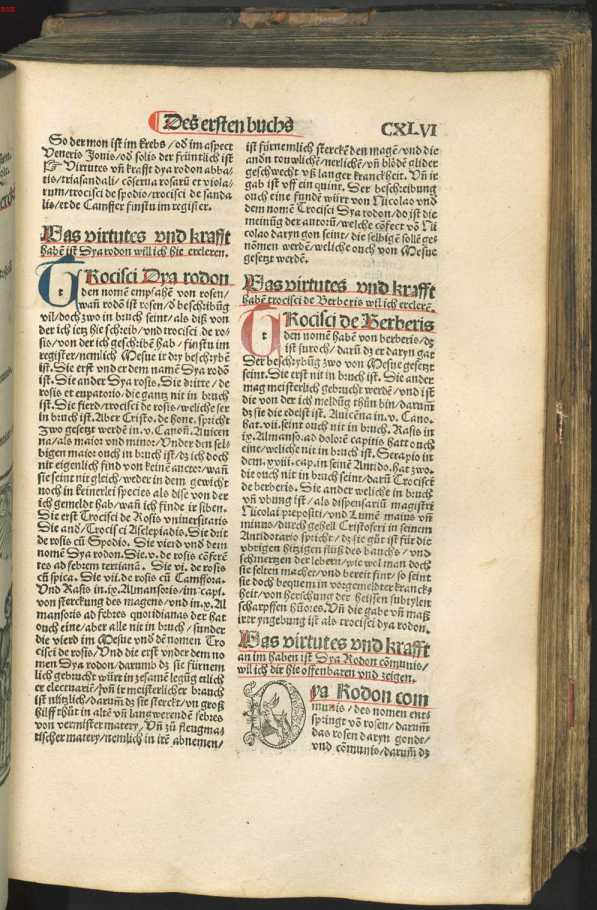 Des ersten buchs
CXLVI
So der mon ist im krebs/od im aspect
Veneris Jouis/od solis der früntlich ist
Virtutes vñ krafft dya rodon abba/
tis/triasandali/cõserua rosarũ et viola/
rum/trocisci de spodio/trocisci de sanda
lis/et de Camffer finstu im register.
Das virtutes vnd krafft
habẽ ist Dya rodon will ich hie ercleren.
Trocisci Dya rodon
den nomẽ empfahẽ von rosen/
wañ rodõ ist rosen/d beschribũg
vil/doch zwo in bruch seint/als diß von
der ich ietz hie schreib/vnd trocisci de ro/
sis/von der ich geschribẽ hab/finstu im
register/nemlich Mesue ir dry beschrybẽ
ist. Die erst vnder dem namẽ Dya rodõ
ist. Die ander Dya rosis. Die dritte/de
rosis et eupatorio/die gantz nit in bruch
ist. Die fierd/trocisci de rosis/weliche ser
in bruch ist. Aber Cristo. de hone. spricht
Zwo gesetzt werdẽ in.v. Canoñ. Auicen
na/als maior vnd minor/Vnder den sel/
bigen maior ouch in bruch ist/dz ich doch
nit eigenlich find von keinẽ auctor/wañ
sie seint nit gleich/weder in dem gewicht
noch in keinerlei species als dise von der
ich gemeldt hab/wañ ich finde ir siben.
Die erst Trocisci de Rosis vniuersitatis
Die and/Trocisci Asclepiadis. Die drit
de rosis cũ Spodio. Die vierd vnd dem
nomẽ Dya rodon. Die.v. de rosis cõferẽ
tes ad febrem tercianã. Die vi. de rosis
cũ spica. Die vii. de rosis cũ Camffora.
Vnd Rasis in.ix. Almansoris/im capit.
von sterckung des magens/vnd in.x. Al
mansoris ad febres quotidianas der hat
ouch eine/aber alle nit in bruch/sunder
die vierd im Mesue vnd dẽ nomẽ Tro
cisci de rosis/Vnd die erst vnder dem no
men Dya rodon/darumb dz sie fürnem
lich gebrucht würt in zesamẽ legũg etlich
er electuariẽ/võ ir meisterlicher bruch
ist nützlich/darum̃ dz sie sterckt/vn groß
hilff thůt in altẽ vñ langwerendẽ febres
von vermister matery/Vñ zů fleugma/
tischer matery/nemlich in irẽ abnemen/
ist fürnemlich sterckẽ den magẽ/vnd die
andn touwlichẽ/nerlichẽ/vñ blödẽ glider
geschwecht vß langer kranckheit. Vñ ir
gab ist vff ein quint. Der beschreibung
ouch eine fundẽ würt von Nicolao vnd
dem nomẽ Trocisci Dya rodon/do ist die
meinũg der autorũ/welche cõfect võ Ni
colao daryn gon seint/die selbigẽ sollẽ ge/
nõmen werdẽ/weliche ouch von Mesue
gesetzt werdẽ.
Das virtutes vnd krafft
habẽ trocisci de Berberis wil ich erclerẽ.
Trocisci de Berberis
den nomẽ habẽ von berberis/dz
ist suroch/darũ dz er daryn gat
Der beschrybũg zwo von Mesue gesetzt
seint. Die erst nit in bruch ist. Die ander
mag meisterlich gebrucht werdẽ/vnd ist
die von der ich meldũg thůn bin/darum̃
dz sie die edelst ist. Auicẽna in.v. Cano.
hat.vii. seint ouch nit in bruch. Rasis in
ix. Almanso. ad dolorẽ capitis hatt ouch
eine/weliche nit in bruch ist. Serapio in
dem.xviii. cap. in seinẽ Antido. hat zwo.
die ouch nit in bruch seint/darũ Trociscẽ
de berberis. Die ander weliche in bruch
vñ vbung ist/als dispensariũ magistri
Nicolai prepositi/vnd Lumẽ maius vñ
minus/durch geheiß Cristoferi in seinem
Antidotario spricht/dz sie gůt ist für die
vbrigen hitzigen flüß des bauchs/vnd
schmertzen der lebern/wie wol man doch
sie selten machet/vnd bereit fint/so seint
sie doch bequem in vorgemeldter krancks
heit/von herschung der heissen subtylen
scharpffen hũores. Vñ die gabe vñ maß
irer yngebung ist als trocisci dya rodon.
Das virtutes vnd krafft
an im haben ist Dya Rodon cõmunis/
wil ich dir hie offenbaren vnd zeigen.
Dya Rodon com
munis/des nomen ent/
springt võ rosen/darum̃
das rosen daryn gondt/
vnd cõmunis/darum̃ dz